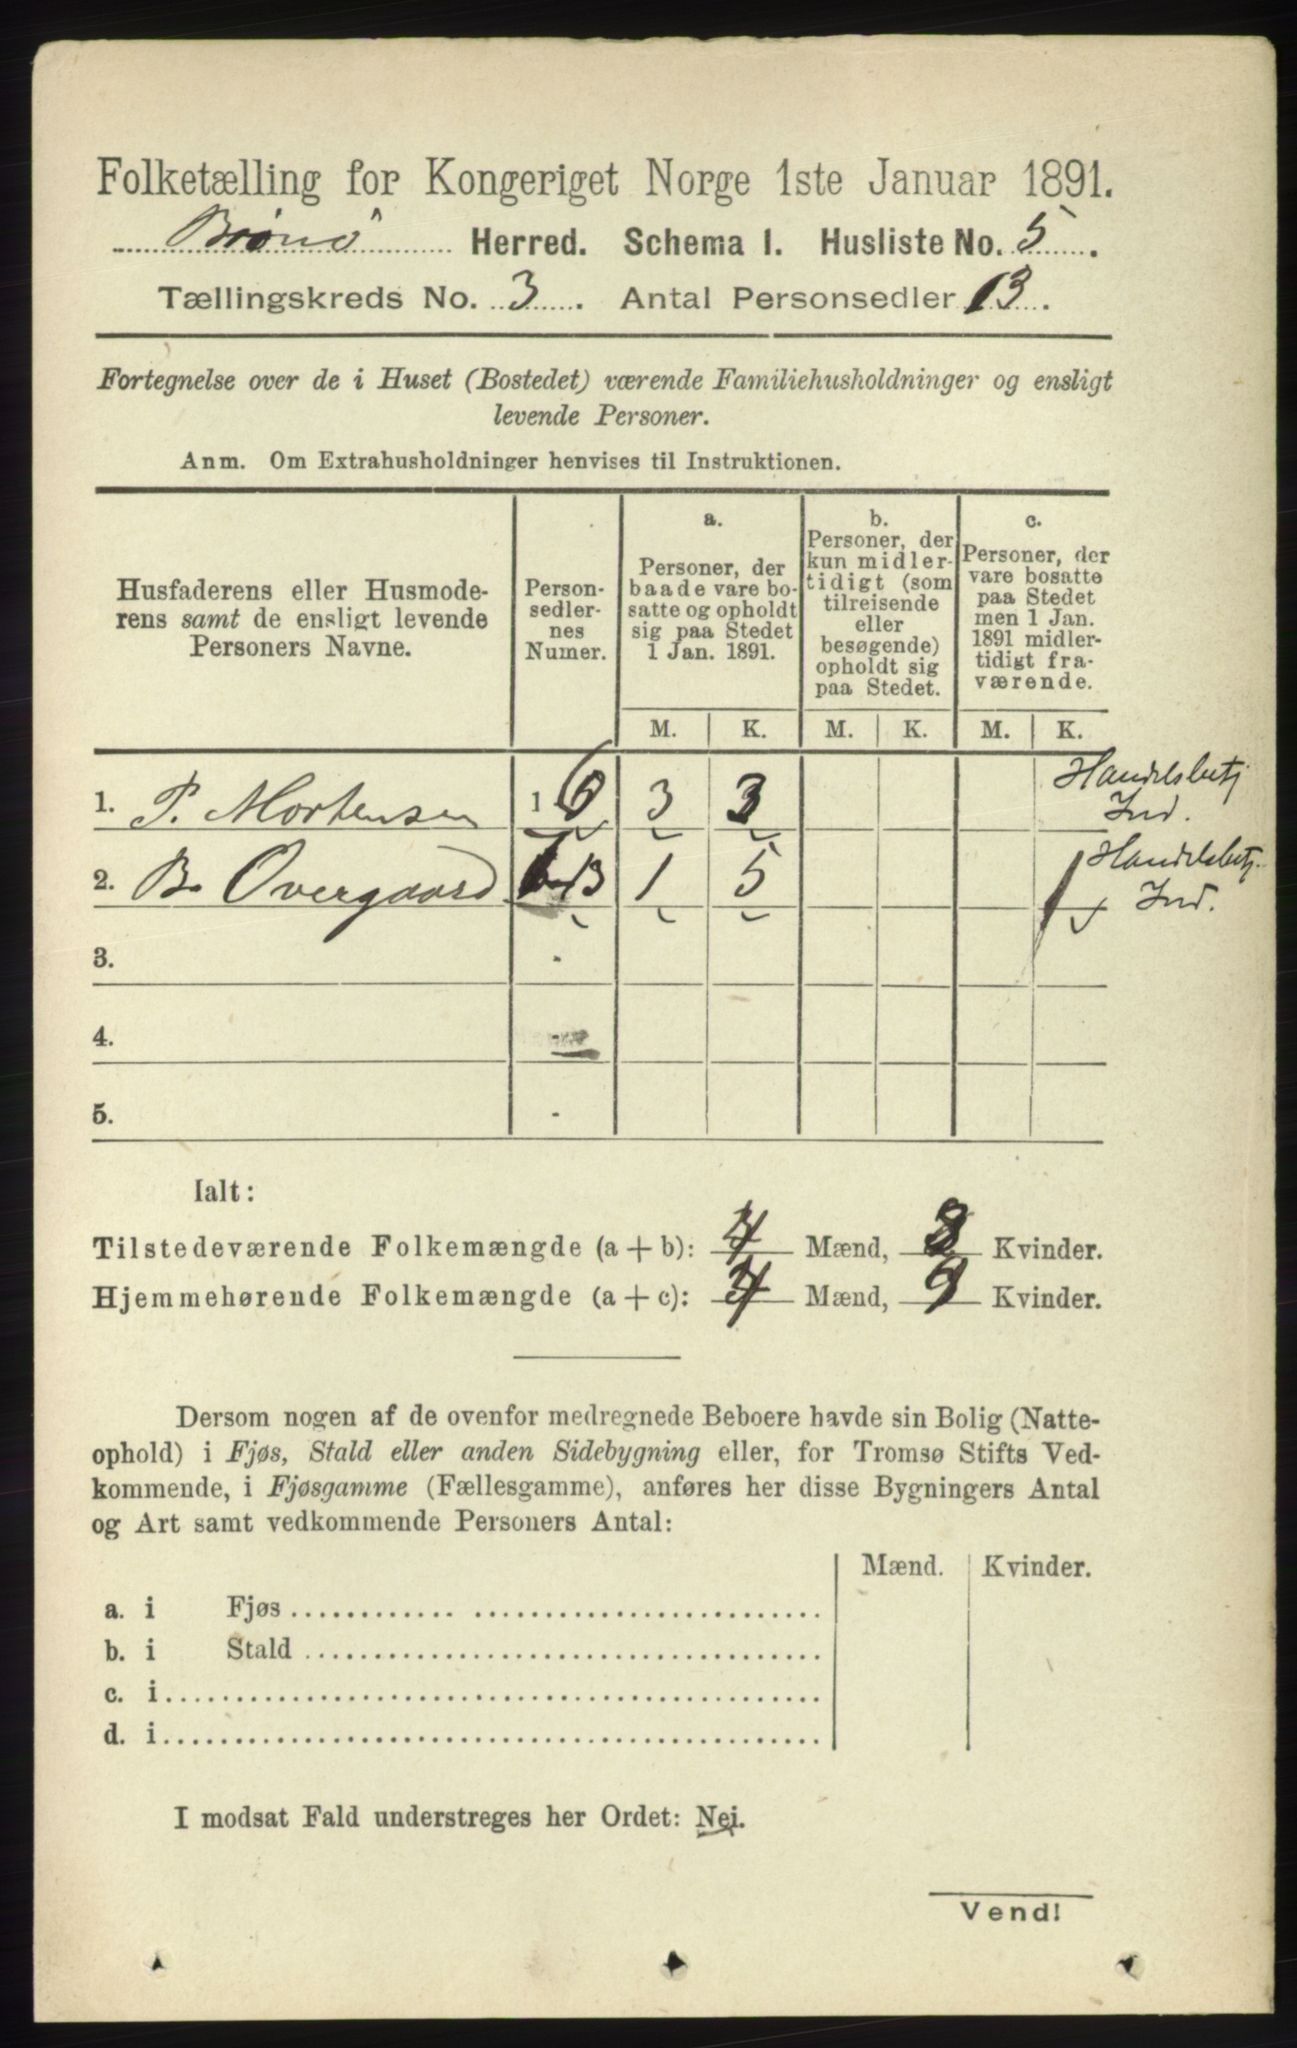 Folketælling for Kongeriget Norge 1ste Januar 1891.
Brønø Herred. Schema 1. Husliste No. 5.
Tællingskreds No. 3. Antal Personsedler 13.
Fortegnelse over de i Huset (Bostedet) værende Familiehusholdninger og ensligt
levende Personer.
Anm. Om Extrahusholdninger henvises til Instruktionen.
Husfaderens eller Husmode-
rens samt de ensligt levende
Personers Navne.
Person-
sedler-
nes
Numer.
a.
Personer, der
baade vare bo-
satte og opholdt
sig paa Stedet
1 Jan. 1891.
b.
Personer, der
kun midler-
tidigt (som
tilreisende
eller
besøgende)
opholdt sig
paa Stedet.
c.
Personer, der
vare bosatte
paa Stedet
men 1 Jan.
1891 midler-
tidigt fra-
værende.
M. K. M. K. M. K.
1. P. Mortensen 1-6 3 3 Handelsbetj
Ind.
2. B. Overgaard 13 1 5 1 Handelsbetj.
Ind.
3. -
4. -
5. -
Ialt:
Tilstedeværende Folkemængde (a + b): 4 Mænd, 8 Kvinder.
Hjemmehørende Folkemængde (a + c): 4 Mænd, 9 Kvinder.
Dersom nogen af de ovenfor medregnede Beboere havde sin Bolig (Natte-
ophold) i Fjøs, Stald eller anden Sidebygning eller, for Tromsø Stifts Ved-
kommende, i Fjøsgamme (Fællesgamme), anføres her disse Bygningers Antal
og Art samt vedkommende Personers Antal:
Mænd. Kvinder.
a. i Fjøs
b. i Stald
c. i
d. i
I modsat Fald understreges her Ordet: Nei.
Vend!